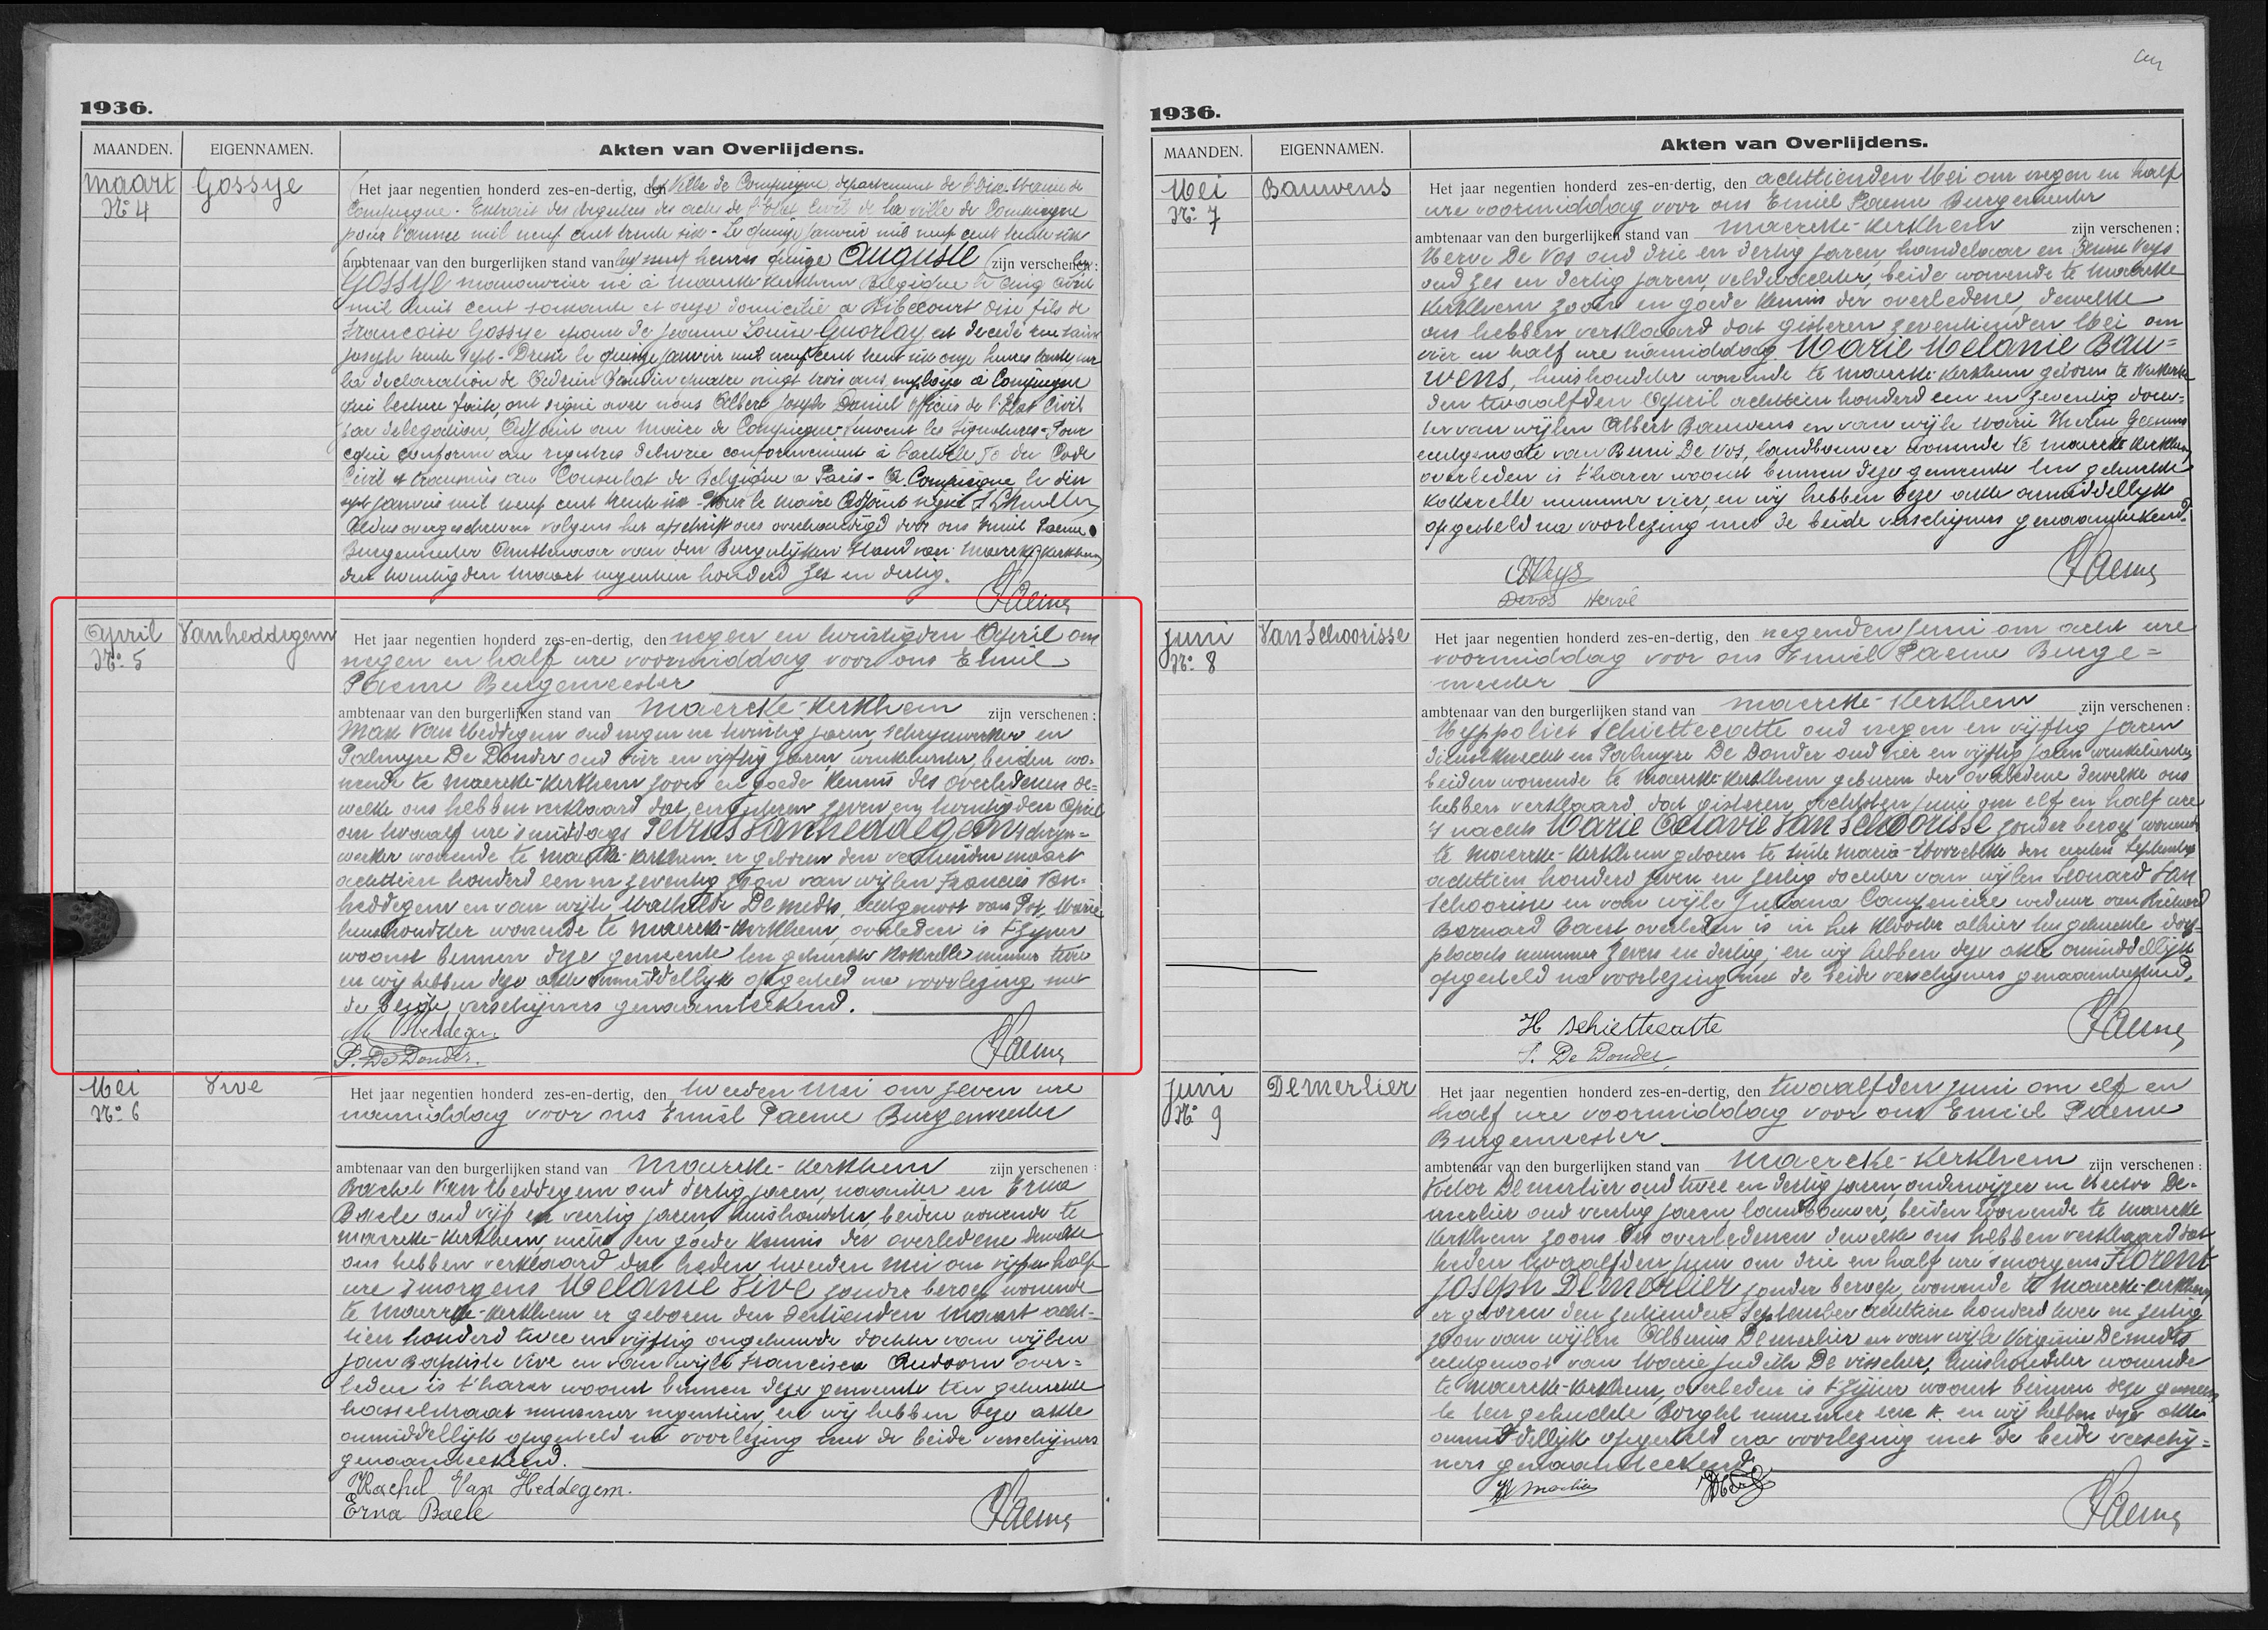 1936.
MAANDEN.
EIGENNAMEN.
Akten van Overlijdens.
Maart
N:o 4
Gossye
Het jaar negentien honderd zes-en-dertig, den Ville de Compiegne, departement de l'Oise. Mairie de
Compiegne. Extrait des registres des actes de l'Etat Civil de la ville de Compiegne
pour l'annee mil neuf cent trente six - Le quinze janvier mil neuf cent trente six
ambtenaar van den burgerlijken stand van neuf heures quinze Auguste zijn verschenen:
Gossye manouvrier né à Maercke Kerkhem Belgique le cinq avril
mil huit cent soixante et onze domicilié a Ribecourt Oise fils de
Francoise Gossye epoux de Jeanne Louise Guorlay est decedé rue Saint
Joseph trente sept - Dressé le quinze janvier mil neuf cent trente six onze heures trente sur
la declaration de Gaudin quatre vingt trois ans, employe à Compiegne
qui lecture faite, ont signé avec nous Albert Joseph Daniel officier de l'Etat Civil
par delegation, Adjoint au Maire de Compiegne. Suivent les signatures - Pour
copie conforme au registres delivrée conformement à l'article du Code
Civil et transmis au Consulat de Belgique a Paris - A Compiegne le dix
sept janvier mil neuf cent trente six - Pour le Maire Adjoint signé
Aldus overgeschreven volgens het afschrift ons overhandigd door ons Emiel Paeme
Burgemeester Ambtenaar van den Burgerlijken Stand van Maercke-Kerkhem
den twintigden Maart negentien honderd zes en dertig.
Paeme
April
N:o 5
Vanheddegem
Het jaar negentien honderd zes-en-dertig, den negen en twintigden April om
negen en half ure voormiddag voor ons Emiel
Paeme Burgemeester
ambtenaar van den burgerlijken stand van Maercke-Kerkhem zijn verschenen:
Max Van Heddegem oud negen en twintig jaren, schrijnwerker en
Palmyre De Donder oud vier en vijftig jaren, winkelierster, beiden wo-
nende te Maercke-Kerkhem zoon en goede kennis des overledenen de-
welke ons hebben verklaard dat eergisteren zeven en twintigden April
om twaalf ure 's middags Petrus Vanheddegem schrijn-
werker wonende te Maercke-Kerkhem er geboren den veertienden Maart
achttien honderd een en zeventig zoon van wijlen Francies Van-
heddegem en van wijle Mathilde De Medts, echtgenoot van Pot, Marie
huishoudster wonende te Maercke-Kerkhem, overleden is t'zijner
woonst binnen deze gemeente ten gehuchte Kokerelle nummer twee
en wij hebben deze akte onmiddellijk opgesteld na voorlezing met
de beide verschijners genaamteekend.
M. VHeddegem
P. De Donder.
Paeme
Mei
N:o 6
Vive
Het jaar negentien honderd zes-en-dertig, den tweeden Mei om zeven ure
namiddag voor ons Emiel Paeme Burgemeester
ambtenaar van den burgerlijken stand van Maercke-Kerkhem zijn verschenen:
Rachel Van Heddegem oud dertig jaren, naaister en Erna
Baele oud vijf en veertig jaren, huishoudster, beiden wonende te
Maercke-Kerkhem, nicht en goede kennis der overledene dewelke
ons hebben verklaard dat heden tweeden Mei om vijf en half
ure 's morgens Melanie Vive zonder beroep wonende
te Maercke-Kerkhem er geboren den dertienden Maart acht-
tien honderd twee en vijftig ongehuwde dochter van wijlen
Jan Baptiste Vive en van wijle Francisca Audoorn over-
leden is t'harer woonst binnen deze gemeente ten gehuchte
hasselstraat nummer negentien, en wij hebben deze akte
onmiddellijk opgesteld na voorlezing met de beide verschijners
genaamteekend.
Rachel Van Heddegem.
Erna Baele
Paeme
1936.
MAANDEN.
EIGENNAMEN.
Akten van Overlijdens.
Mei
N:o 7
Bauwens
Het jaar negentien honderd zes-en-dertig, den achttienden Mei om negen en half
ure voormiddag voor ons Emiel Paeme Burgemeester
ambtenaar van den burgerlijken stand van Maercke-Kerkhem zijn verschenen:
Hervé De Vos oud drie en dertig jaren handelaar en Veys
oud zes en dertig jaren, veldwachter, beide wonende te Maercke
Kerkhem zoon en goede kennis der overledene, dewelke
ons hebben verklaard dat gisteren zeventienden Mei om
vier en half ure namiddag Marie Melanie Bau=
wens, huishoudster wonende te Maercke-Kerkhem geboren te Nukerke
den twaalfden April achttien honderd een en zeventig doch-
ter van wijlen Albert Bauwens en van wijle Marie
echtgenoote van Remi De Vos, landbouwer wonende te Maercke Kerkhem
overleden is t'harer woonst binnen deze gemeente ten gehuchte
Kokerelle nummer vier, en wij hebben deze akte onmiddellijk
opgesteld na voorlezing met de beide verschijners genaamteekend.
Veys
Devos Hervé
Paeme
Juni
N:o 8
Van Schoorisse
Het jaar negentien honderd zes-en-dertig, den negenden Juni om acht ure
voormiddag voor ons Emiel Paeme Burge=
meester
ambtenaar van den burgerlijken stand van Maercke-Kerkhem zijn verschenen:
Hyppoliet Schiettecatte oud negen en vijftig jaren
dienstknecht en Palmyre De Donder oud vier en vijftig jaren winkelierster,
beiden wonende te Maercke-Kerkhem geburen der overledene dewelke ons
hebben verklaard, dat gisteren achtsten Juni om elf en half ure
's nachts Marie Octavie Van Schoorisse zonder beroep wonende
te Maercke-Kerkhem geboren te Sinte Maria-Hoorebeke den eersten September
achttien honderd zeven en zestig dochter van wijlen Leonard Van
Schoorisse en van wijle Juliana Campeniere weduwe van
Bernard Baert overleden is in het Klooster alhier ten gehuchte dorp-
plaats nummer zeven en dertig; en wij hebben deze akte onmiddellijk
opgesteld na voorlezing met de beide verschijners genaamteekend.
H Schiettecatte
P. De Donder
Paeme
Juni
N:o 9
Demerlier
Het jaar negentien honderd zes-en-dertig, den twaalfden Juni om elf en
half ure voormiddag voor ons Emiel Paeme
Burgemeester
ambtenaar van den burgerlijken stand van Maercke-Kerkhem zijn verschenen:
Victor Demerlier oud twee en dertig jaren, onderwijzer en Hector De-
merlier oud veertig jaren landbouwer, beiden wonende te Maercke
Kerkhem zoons des overledenen dewelke ons hebben verklaard dat
heden twaalfden Juni om drie en half ure 's morgens Florent
Joseph Demerlier zonder beroep, wonende te Maercke-Kerkhem
er geboren den September achttien honderd twee en zestig
zoon van wijlen Albinus Demerlier en van wijle Virginie Demedts
echtgenoot van Marie Judith De Visscher, huishoudster wonende
te Maercke-Kerkhem, overleden is t'zijner woonst binnen deze gemeen-
te ten gehuchte Borght nummer een A. en wij hebben deze akte
onmiddellijk opgesteld na voorlezing met de beide verschij=
ners genaamteekend.
Paeme